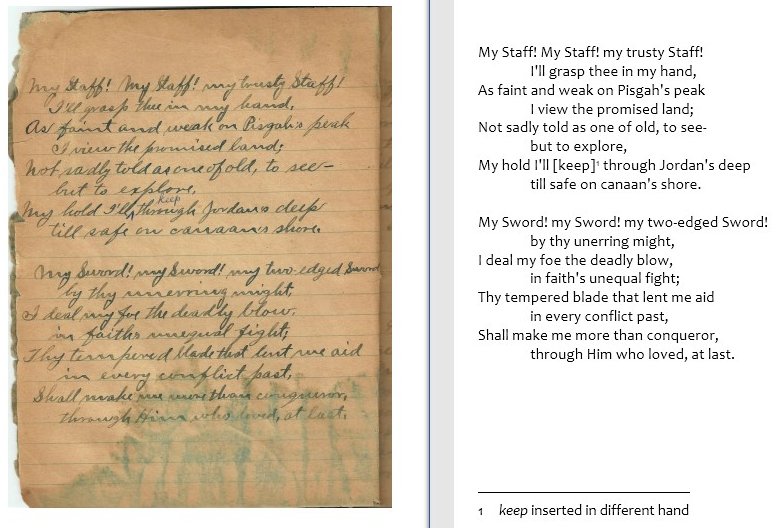 My Staff! My Staff! my trusty Staff!
I'll grasp thee in my hand,
As faint and weak on Pisgah's peak
I view the promised land;
Not sadly told as one of old, to see-
but to explore,
keep
My hold I'll through Jordan's deep
till safe on canaan's shore.
My Sword! my Sword! my two-edged Sword
by thy unerring might,
I deal my foe the deadly blow,
in faith's unequal fight;
Thy tempered blade that lent me aid
in every conflict past,
Shall make me more than conqueror,
through Him who loved, at last.
My Staff! My Staff! my trusty Staff!
I'll grasp thee in my hand,
As faint and weak on Pisgah's peak
I view the promised land;
Not sadly told as one of old, to see-
but to explore,
My hold I'll [keep]¹ through Jordan's deep
till safe on canaan's shore.
My Sword! my Sword! my two-edged Sword!
by thy unerring might,
I deal my foe the deadly blow,
in faith's unequal fight;
Thy tempered blade that lent me aid
in every conflict past,
Shall make me more than conqueror,
through Him who loved, at last.
1 keep inserted in different hand